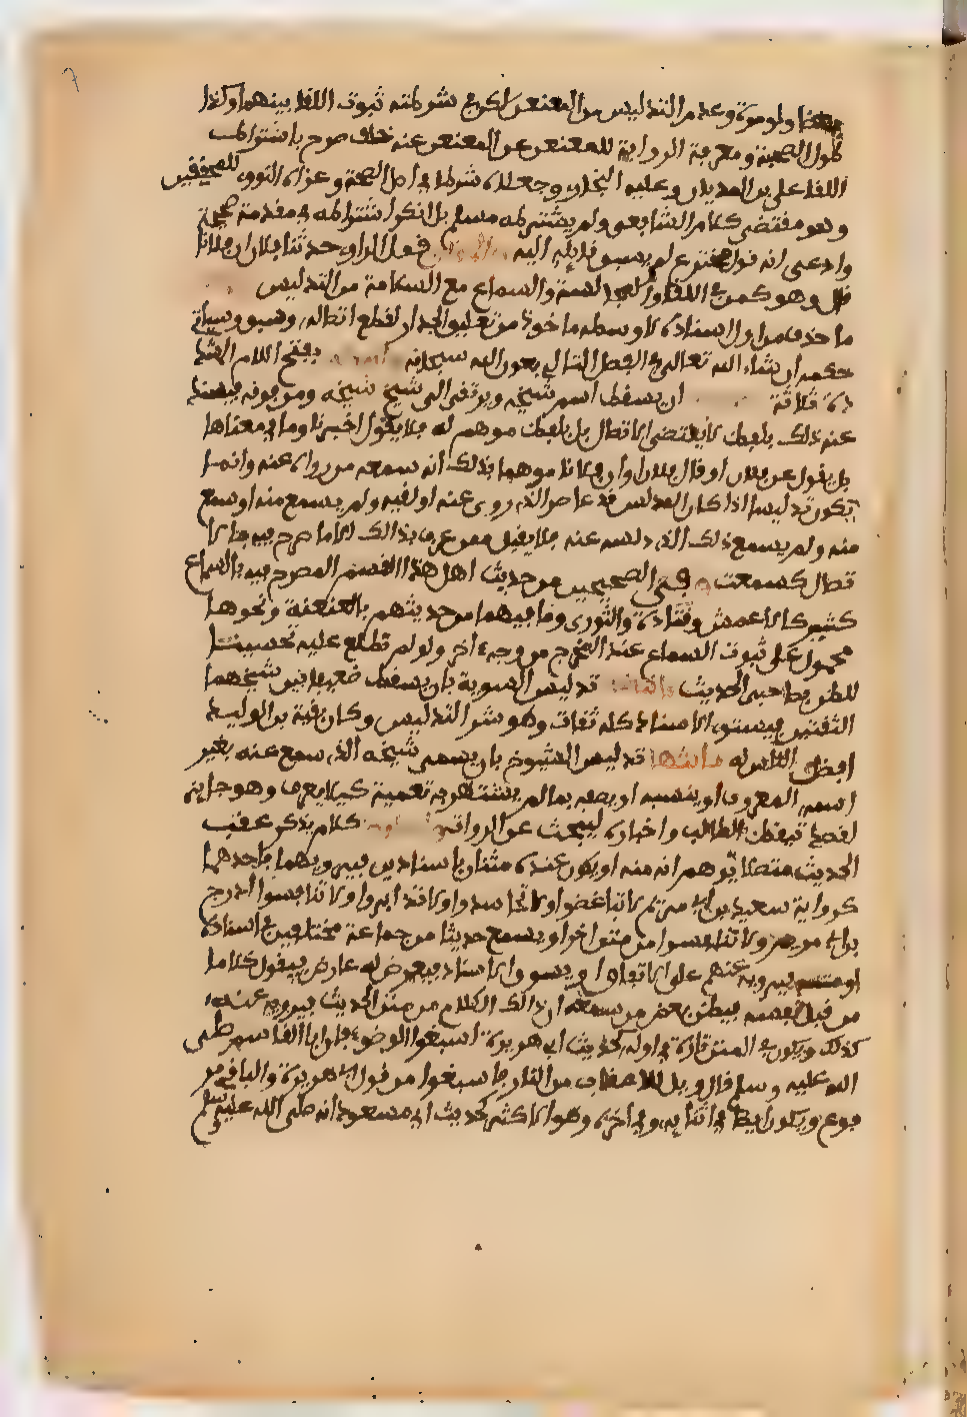 بعضا ولو مرة وعدم التدليس من المعنعن لكن في شرطيته ثبوت اللقا بينهما وكذا
طول الصحبة ومعرفة الرواية للمعنعن عن المعنعن عنه خلف صرح باشتراط
اللقا علي بن المديني وعليه البخاري وجعلاه شرطا في اصل الصحة وعزاه النووي للمحققين
وهو مقتضى كلام الشافعي ولم يشترطه مسلم بل انكر اشتراطه في مقدمة صحيحه
وادعى انه قول مخترع لم يسبق قايله اليه قول الراوي حدثنا فلان ان فلانا
قال وهو كمن في اللقا والمجالسة والسماع مع السلامة من التدليس
ما حذف من اول اسناده لا وسطه ماخوذ من تعليق الجدار لقطع اتصاله وسبق وسياتي
حكمه ان شاء الله تعالى في الفصل التالي بعون الله سبحانه بفتح اللام المشددة
ثلاثة ان يسقط اسم شيخه ويرتقي الى شيخ شيخه ومن فوقه فيسند
عنه ذلك بلفظ لا يقتضي الاتصال بل بلفظ موهم له فلا يقول اخبرنا وما في معناها
بل يقول عن فلان او قال فلان او ان فلانا موهما بذلك انه سمعه من رواه عنه وانما
يكون تدليسا اذا كان المدلس قد عاصر الذي روى عنه او لقيه ولم يسمع منه او سمع
منه ولم يسمع ذلك الذي دلسه عنه فلا يقبل ممن عرف بذالك الا ما صرح فيه بالا
تصال كسمعت وفي الصحيحين من حديث اهل هذا القسم المصرح فيه بالسماع
كثير كالاعمش وقتادة والثوري وما فيهما من حديثهم بالعنعنة ونحوها
محمول على ثبوت السماع عند المخرج من وجه اخر ولو لم نطلع عليه تحسينا
للظن بصاحبي الحديث تدليس التسوية بان يسقط ضعيفا بين شيخهما
الثقتين فيستوي الاسناد كله ثقات وهو شر التدليس وكان بقية بن الوليد
افعل الناس له ثالثها تدليس الشيوخ بان يسمي شيخه الذي سمع عنه بغير
اسمه المعروف او ينسبه او يصفه بما لم يشتهر به تعمية كيلا يعرف وهو جايز
لقصد تيقظ الطالب واختباره ليبحث عن الرواة كلام يذكر عقب
الحديث متصلا يوهم انه منه او يكون عنده متنان باسنادين فيرويهما باحدهما
كرواية سعيد بن ابي مريم لا تباغضوا ولا تحاسدوا ولا تدابروا ولا تنافسوا ادرج
ابن ابي مريم ولا تنافسوا من متن اخر او يسمع حديثا من جماعة مختلفين في اسناده
او متنه فيرويه عنهم على الاتفاق او يسوق الاسناد فيعرض له عارض فيقول كلاما
من قبل نفسه فيظن بعض من سمعه ان ذالك الكلام من متن الحديث فيرويه عنه
كذلك ويكون في المتن تارة في اوله كحديث ابي هريرة اسبغوا الوضوء فان ابا القاسم صلى
الله عليه وسلم قال ويل للاعقاب من النار فاسبغوا من قول ابي هريرة والباقي مر
فوع ويكون ايضا في اثنايه وفي اخره وهو الاكثر كحديث ابن مسعود انه صلى الله عليه وسلم